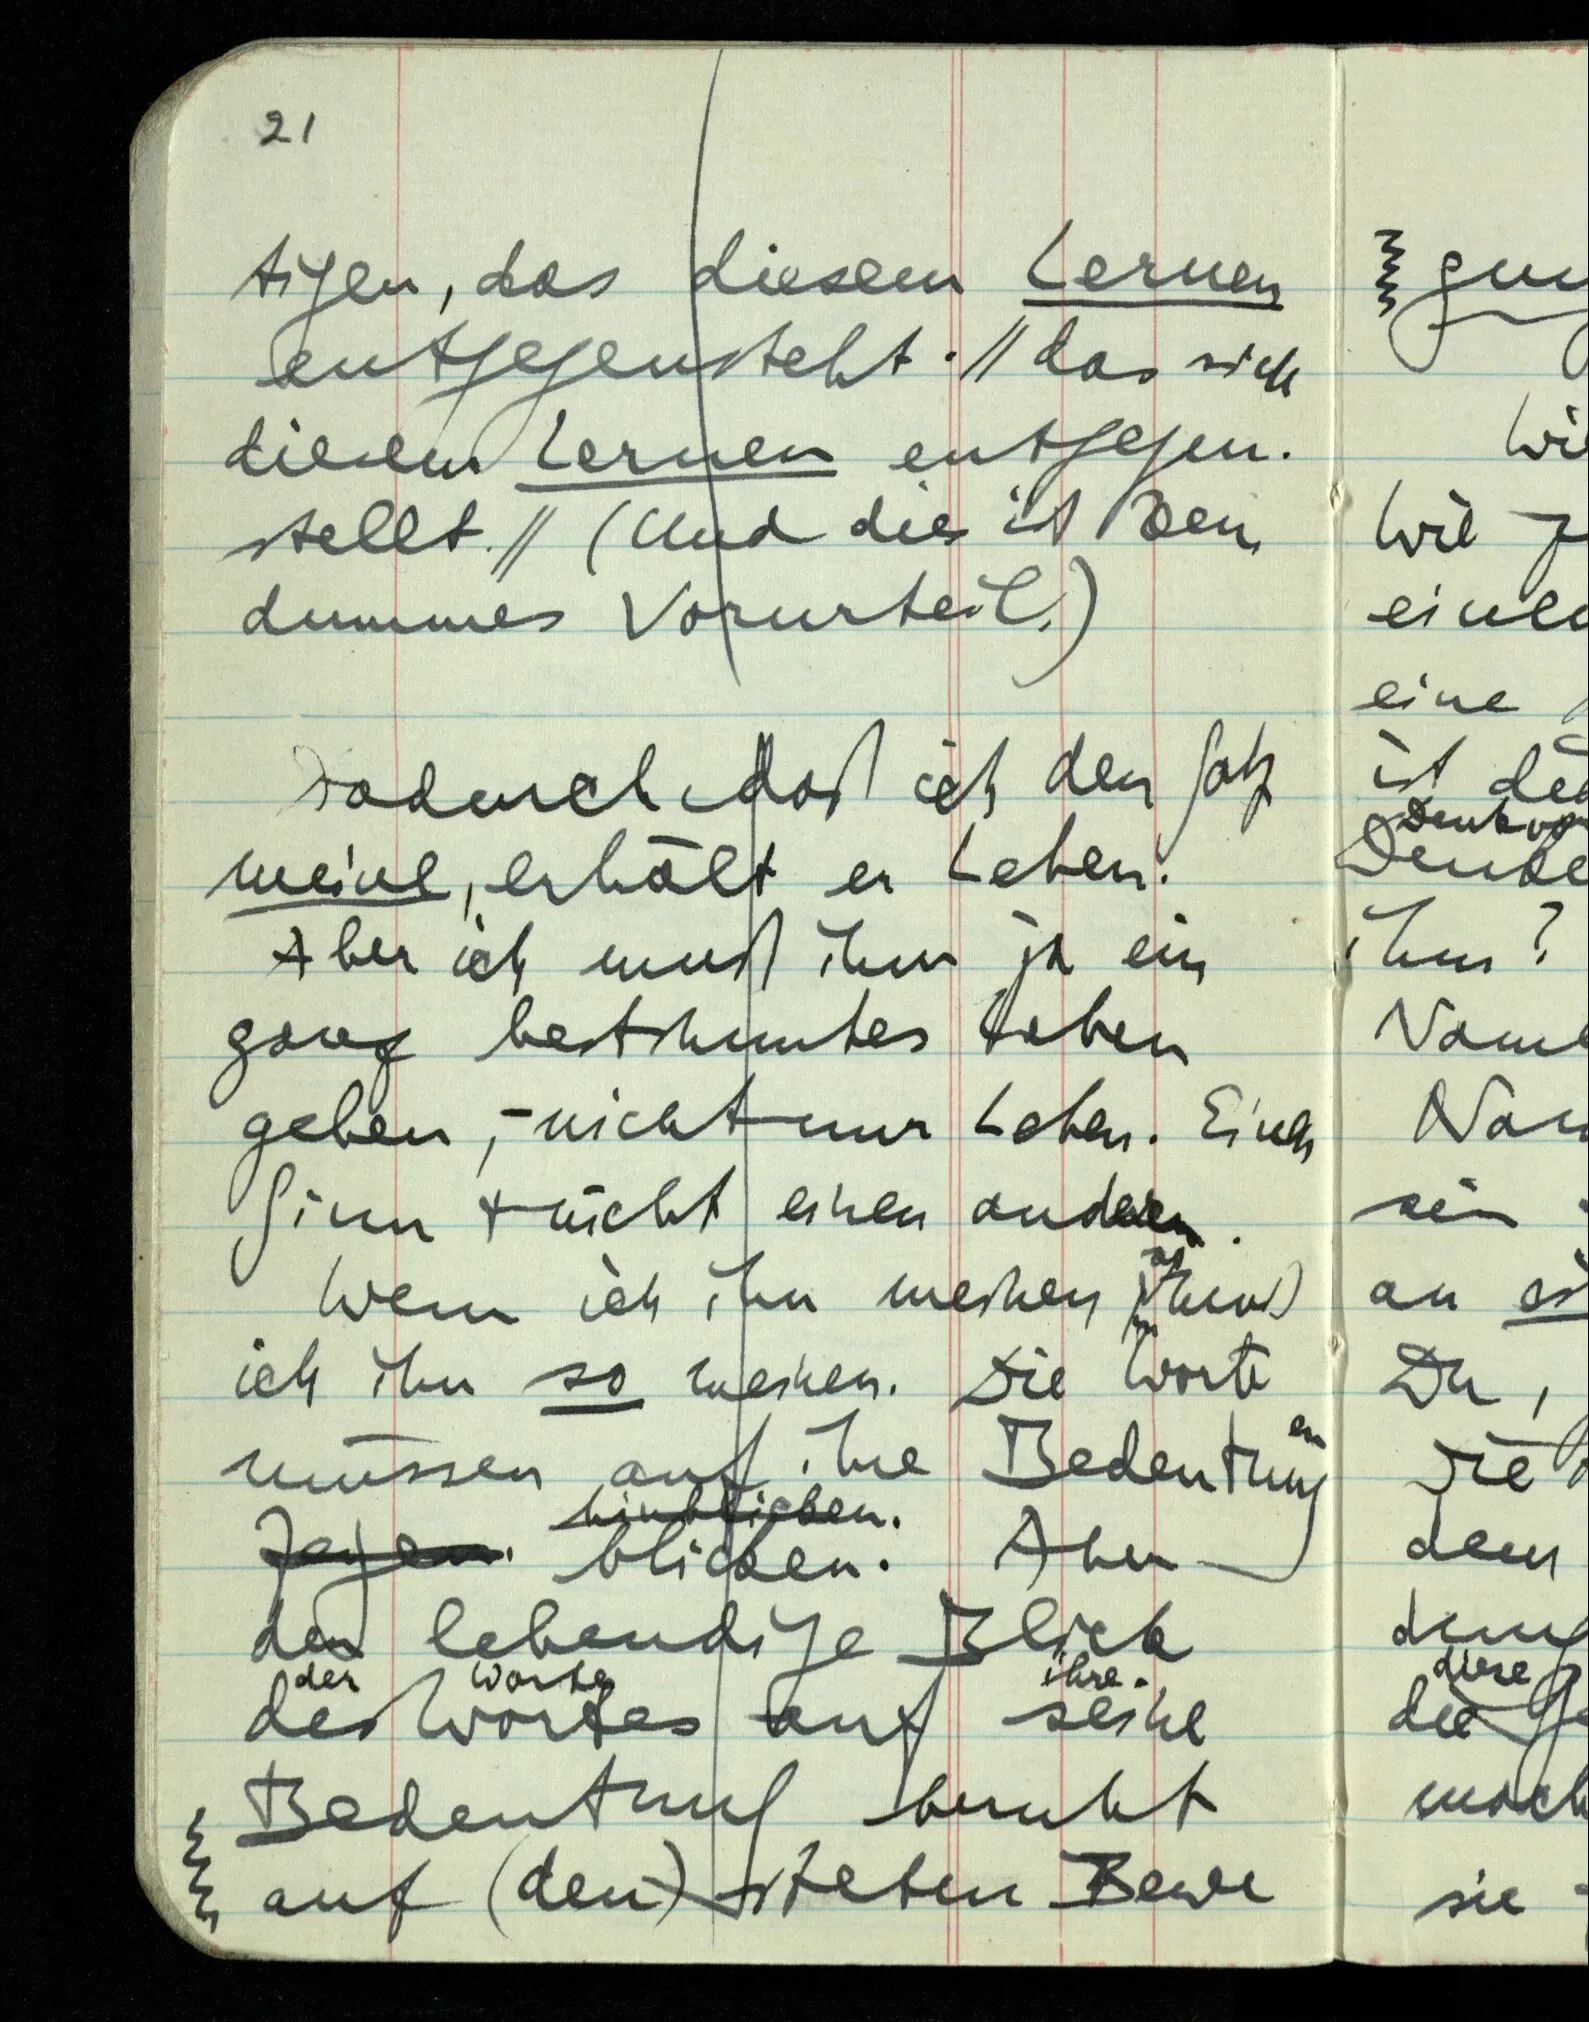 21
tigen, das diesem Lernen
entgegensteht. // das sich
diesem Lernen entgegen-
stellt. // (Und dies ist kein
dummes Vorurteil.)
Dadurch daß ich den Satz
meine, erhält er Leben.
Aber ich muß ihm ja ein
ganz bestimmtes Leben
geben, – nicht nur Leben. Einen
Sinn + nicht einen andern.
Wenn ich ihn meinen muß
ich ihn so meinen. Die Worte
müssen auf ihre Bedeutungen
hinblicken.
zeigen. blicken. Aber
der lebendige Blick
der Worte ihre
des Wortes auf seine
Bedeutung beruht
auf (den) steten Bewe
Wie
eine
ist
ihm?
sein
an
Du,
Die
dem
diese
die
sie